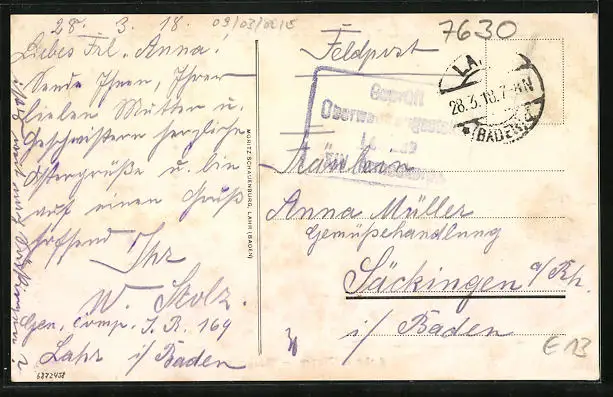 28. 3. 18.
Liebes Frl. Anna!
Sende Ihnen, Ihrer
lieben Mutter u.
Geschwistern herzliche
Ostergrüße u. bin
auf einen Gruß
hoffend
Ihr
W. Stolz.
Gen. Comp. I. R. 169
Lahr i/Baden
6872458
MORITZ SCHAUENBURG, LAHR (BADEN)
7630
Feldpost
Geprüft
LA
28.3.18.7-8N
* (BADEN)
Fräulein
Anna Müller
Gemüsehandlung
Säckingen a/Rh.
i/Baden
E 13